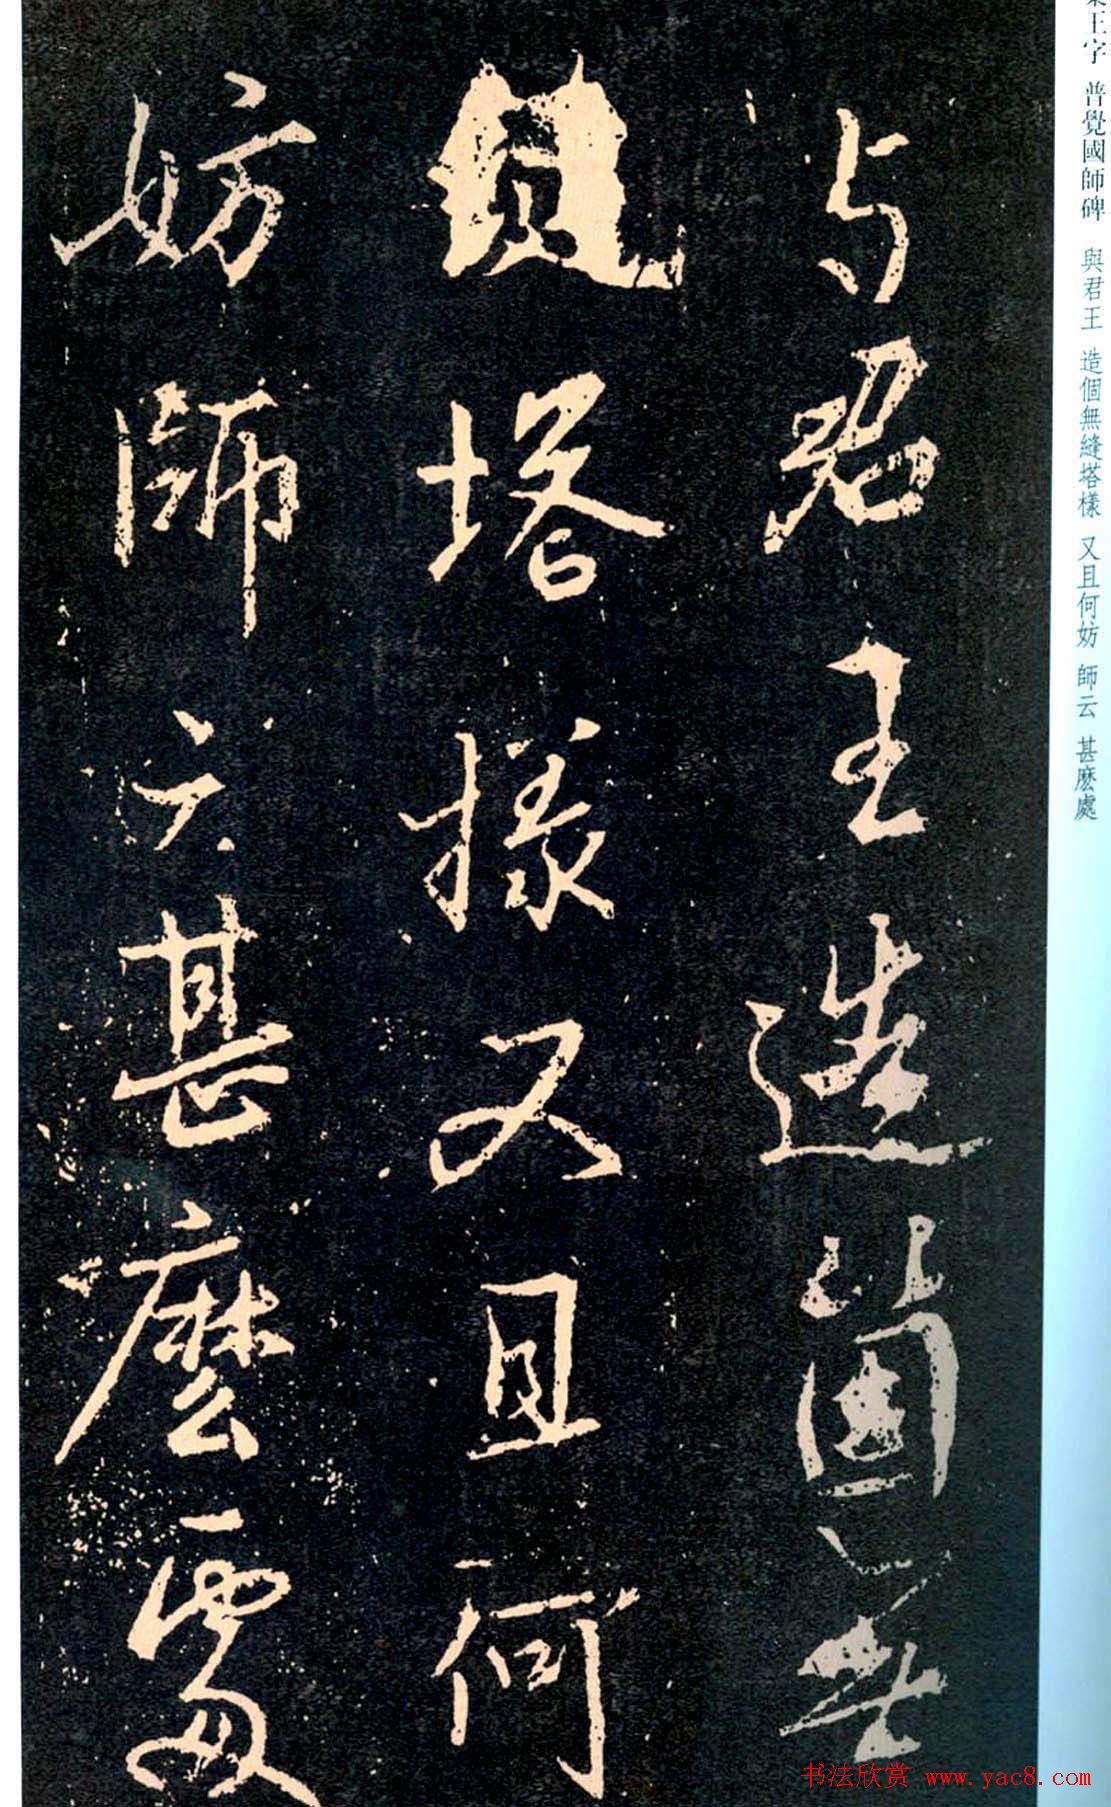 与君王造箇無
縫塔樣又且何
妨師云甚麽處
王字 普覺國師碑 與君王 造個無縫塔樣 又且何妨 師云 甚麽處
书法欣赏 www.yac8.com